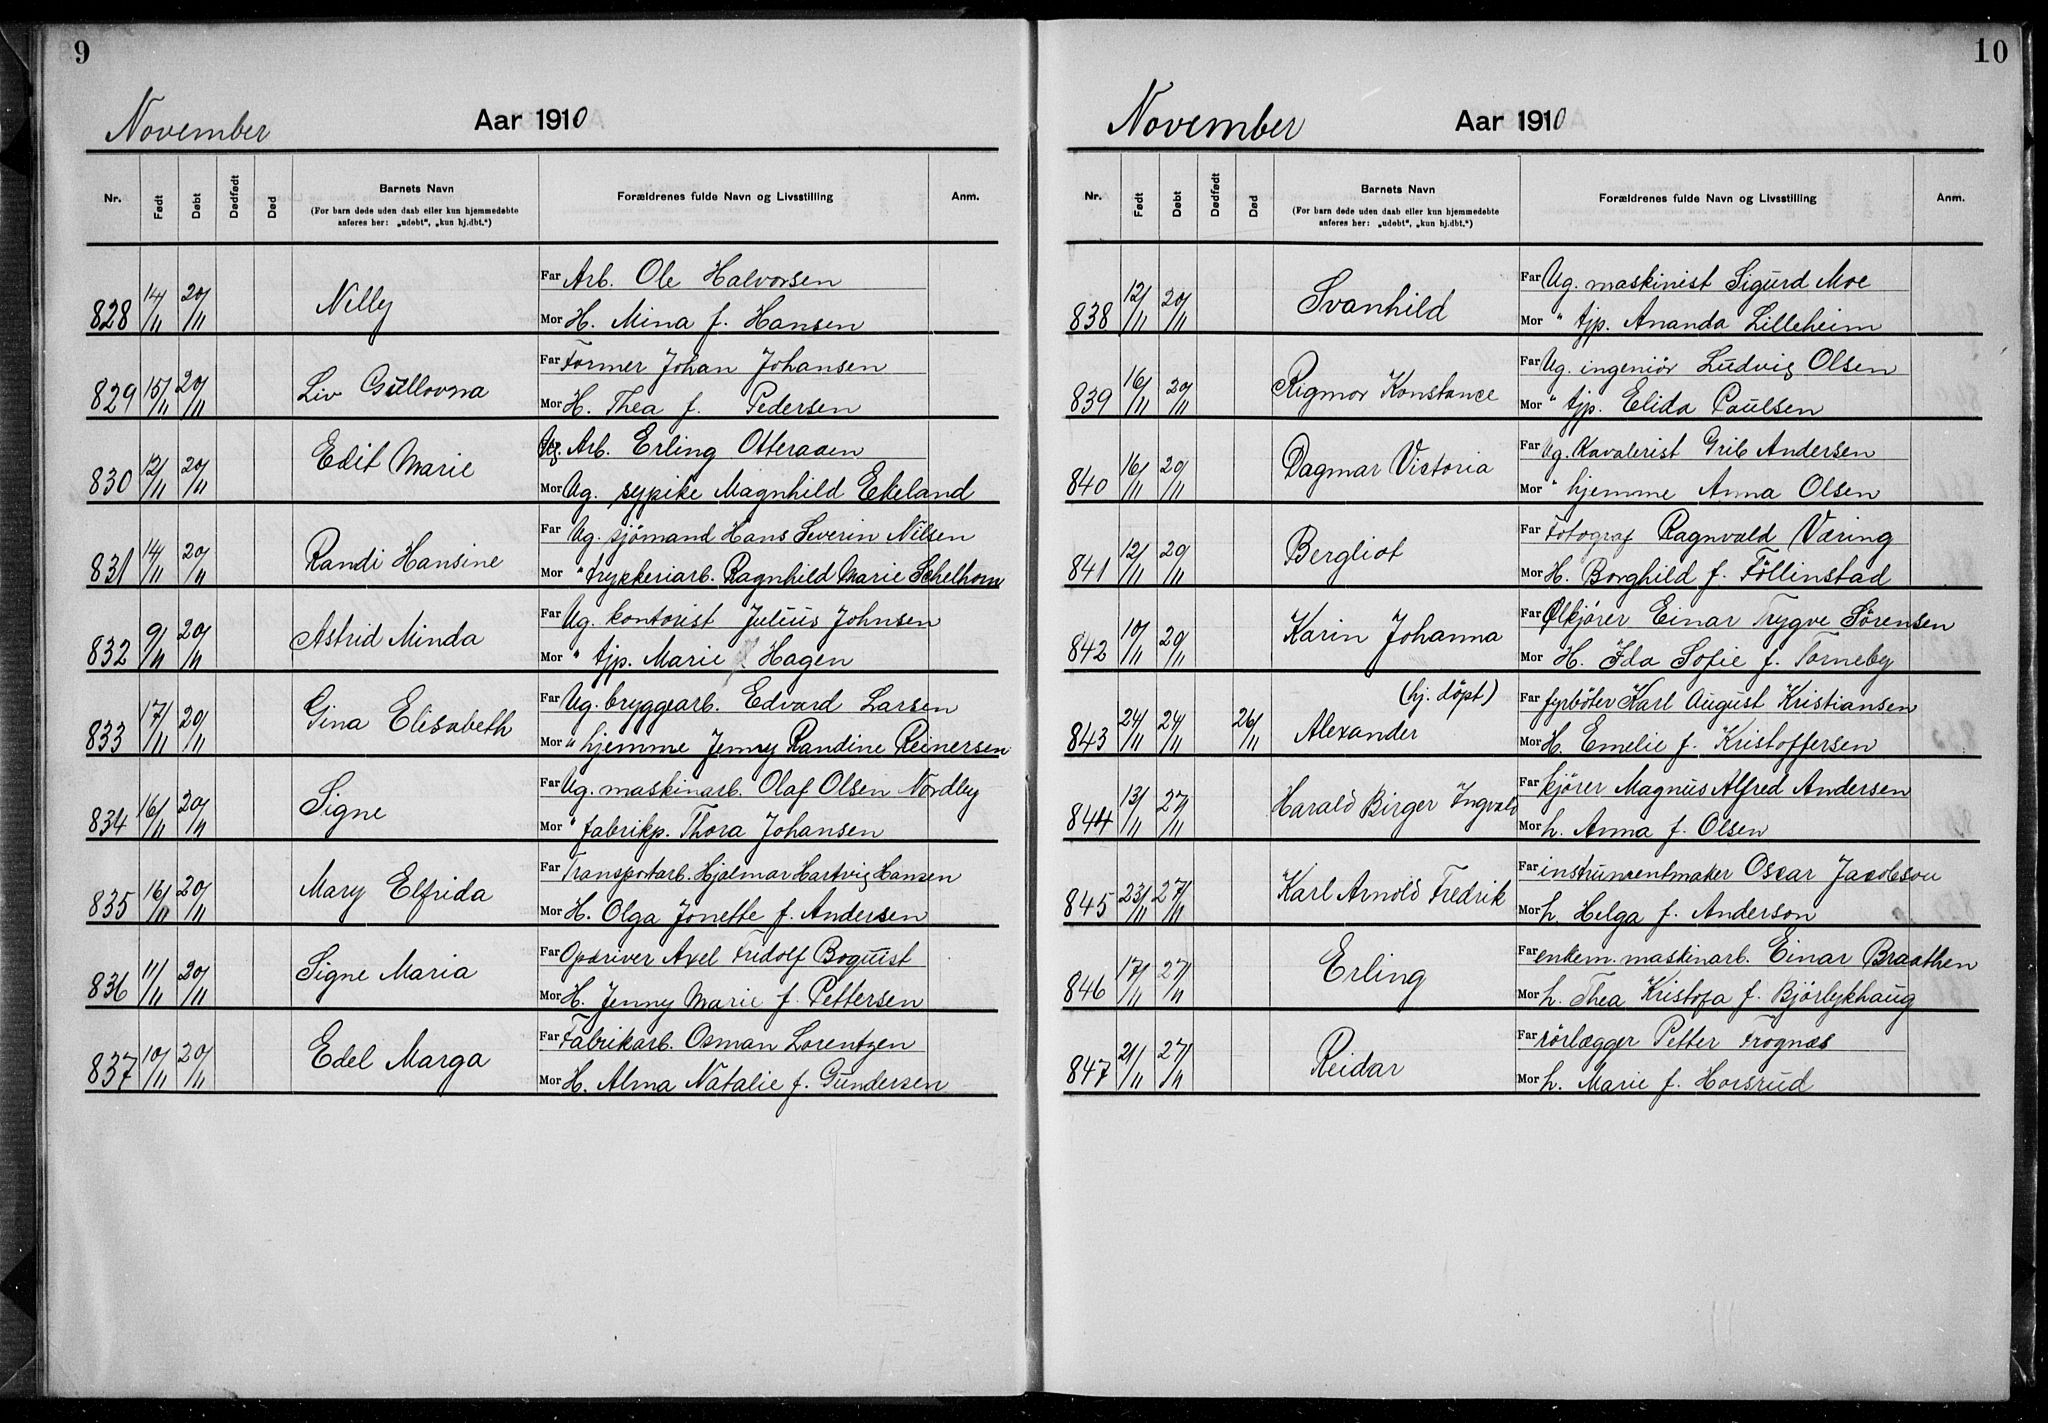 9
November Aar 1910
Nr. Født Døbt Dødfødt Død Barnets Navn Forældrenes fulde Navn og Livsstilling Anm.
(For barn døde uden daab eller kun hjemmedøbte
anføres her: „udøbt“, „kun hj.dbt.“)
828 14/11 20/11 Nilly Far Arb. Ole Halvorsen
Mor H. Mina f. Hansen
829 15/11 20/11 Liv Gullovna Far Former Johan Johansen
Mor H. Thea f. Pedersen
830 12/11 20/11 Edit Marie Far Ug. Arb. Erling Otteraaen
Mor Ug. sypike Magnhild Ekeland
831 14/11 20/11 Randi Hansine Far Ug. sjömand Hans Severin Nilsen
Mor " trykkeriarb. Ragnhild Marie Schelhorn
832 9/11 20/11 Astrid Minda Far Ug. kontorist Julius Johnsen
Mor " tjp. Marie Hagen
833 17/11 20/11 Gina Elisabeth Far Ug. bryggearb. Edvard Larsen
Mor " hjemme Jenny Randine Reinersen
834 16/11 20/11 Signe Far Ug. maskinarb. Olaf Olsen Nordby
Mor " fabrikp. Thora Johansen
835 16/11 20/11 Mary Elfrida Far Transportarb. Hjalmar Hartvig Hansen
Mor H. Olga Jonette f. Andersen
836 11/11 20/11 Signe Maria Far Opdriver Axel Fredolf Boquist
Mor H. Jenny Marie f. Pettersen
837 10/11 20/11 Edel Marga Far Fabrikarb. Osman Lorentzen
Mor H. Alma Natalie f. Gundersen
10
November Aar 1910
Nr. Født Døbt Dødfødt Død Barnets Navn Forældrenes fulde Navn og Livsstilling Anm.
(For barn døde uden daab eller kun hjemmedøbte
anføres her: „udøbt“, „kun hj.dbt.“)
838 12/11 20/11 Svanhild Far Ug. maskinist Sigurd Moe
Mor " tjp. Ananda Lilleheim
839 16/11 20/11 Rigmor Konstance Far Ug. ingeniör Ludvig Olsen
Mor " tjp. Elida Paulsen
840 16/11 20/11 Dagmar Victoria Far Ug. Kavalerist Grib Andersen
Mor " hjemme Anna Olsen
841 12/11 20/11 Bergliot Far Fotograf Ragnvald Væring
Mor H. Borghild f. Föllinstad
842 10/11 20/11 Karin Johanna Far Ølkjörer Einar Trygve Sörensen
Mor H. Ida Sofie f. Torneby
843 24/11 24/11 26/11 (hj. döpt) Alexander Far fyrböter Karl August Kristiansen
Mor H. Emelie f. Kristoffersen
844 13/11 27/11 Harald Birger Ingvald Far kjörer Magnus Alfred Andersen
Mor h. Anna f. Olsen
845 23/11 27/11 Karl Arnold Fredrik Far instrumentmaker Oscar Jacobson
Mor h. Helga f. Anderson
846 17/11 27/11 Erling Far enkem. maskinarb. Einar Braathen
Mor h. Thea Kristofa f. Bjørlykhaug
847 21/11 27/11 Reidar Far rörlægger Petter Frognæs
Mor h. Marie f. Horsrud